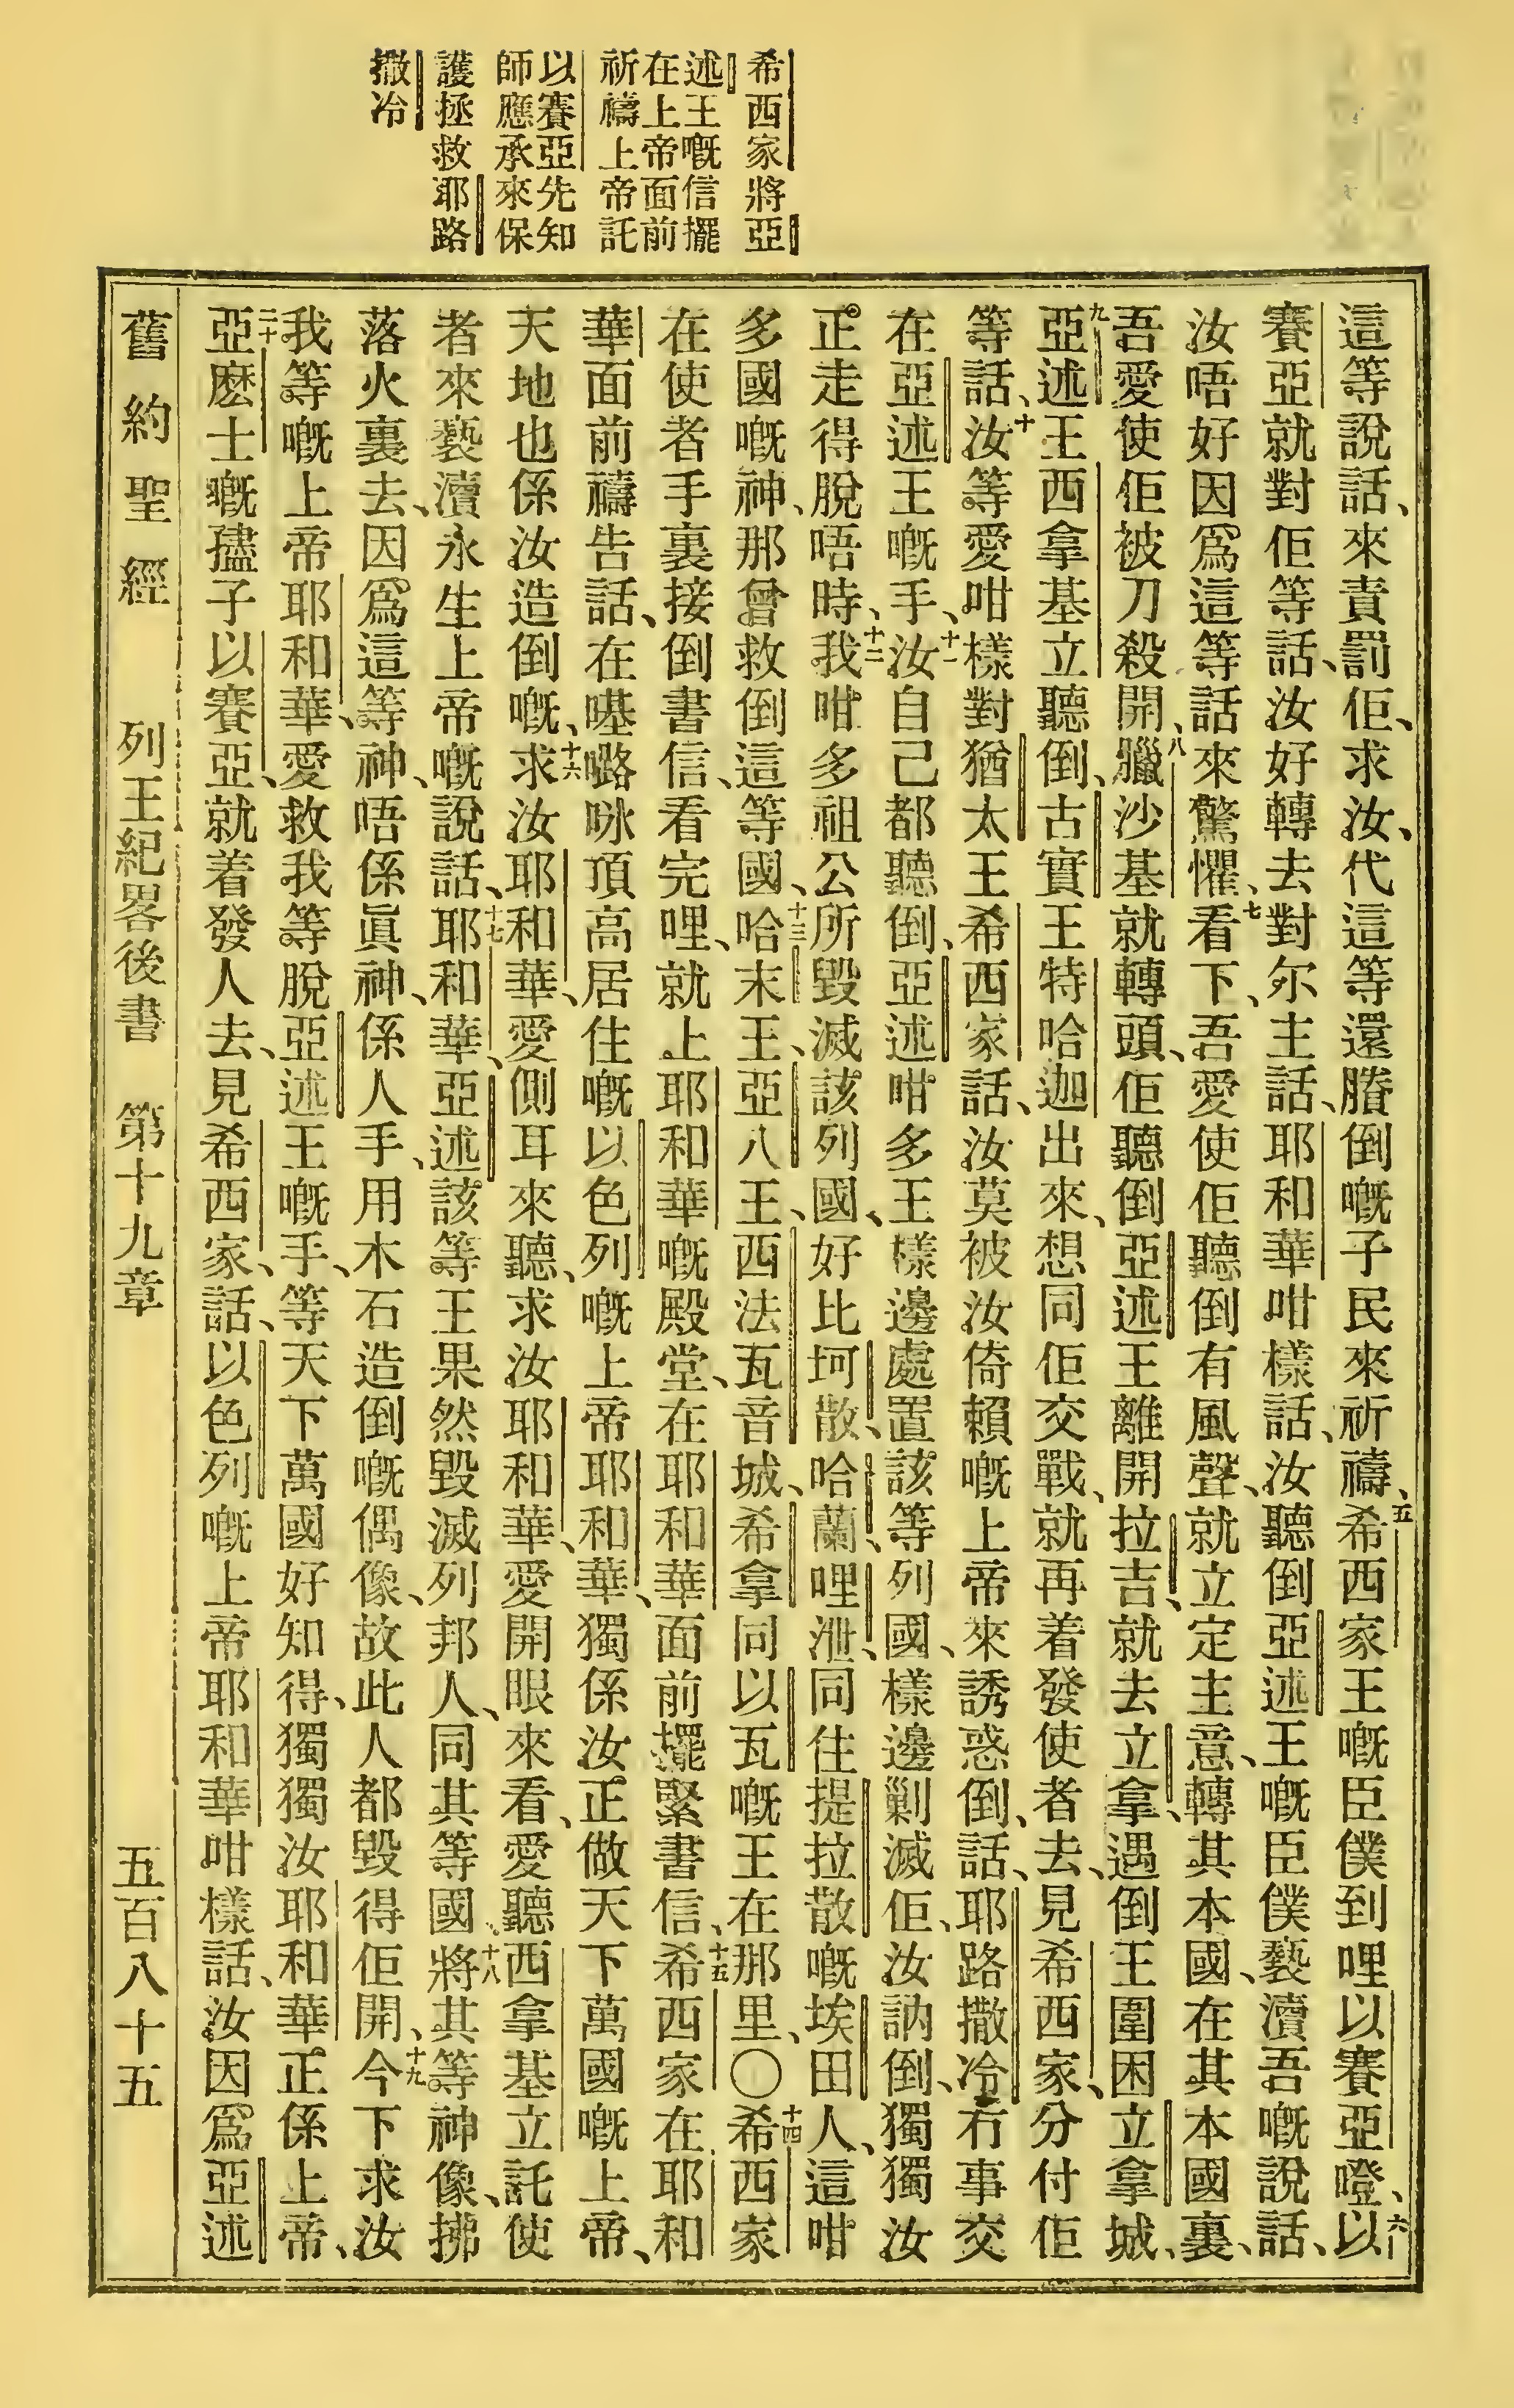 希西家將亞
述王嘅信擺
在上帝面前
祈禱上帝託
以賽亞先知
師應承來保
護拯救耶路
撒冷
這等說話、來責罰佢、求汝、代這等還賸倒嘅子民來祈禱、五希西家王嘅臣僕到哩以賽亞噔、六以
賽亞就對佢等話、汝好轉去對尔主話、耶和華咁樣話、汝聽倒亞述王嘅臣僕褻瀆吾嘅說話、
汝唔好因爲這等話來驚懼、七看下、吾愛使佢聽倒有風聲、就立定主意、轉其本國、在其本國裏、
吾愛使佢被刀殺開、八臘沙基就轉頭、佢聽倒亞述王離開拉吉、就去立拿、遇倒王圍困立拿城、
九亞述王西拿基立聽倒、古實王特哈迦出來、想同佢交戰、就再着發使者去、見希西家、分付佢
等話、十汝等愛咁樣對猶太王希西家話、汝莫被汝倚賴嘅上帝來誘惑倒、話、耶路撒冷冇事交
在亞述王嘅手、十一汝自己都聽倒、亞述咁多王樣邊處置該等列國、樣邊剿滅佢、汝訥倒、獨獨汝
正走得脫唔時、十二我咁多祖公所毀滅該列國、好比坷散、哈蘭、哩泄、同住提拉散嘅埃田人、這咁
多國嘅神、那曾救倒這等國、十三哈末王、亞八王、西法瓦音城、希拿同以瓦嘅王在那里、○十四希西家
在使者手裏接倒書信、看完哩、就上耶和華嘅殿堂、在耶和華面前擺緊書信、十五希西家在耶和
華面前禱告話、在㗭㗰㖠頂高居住嘅以色列嘅上帝耶和華、獨係汝正做天下萬國嘅上帝、
天地也係汝造倒嘅、十六求汝耶和華、愛側耳來聽、求汝耶和華、愛開眼來看、愛聽西拿基立託使
者來褻瀆永生上帝嘅說話、十七耶和華、亞述該等王果然毀滅列邦人、同其等國、十八將其等神像、拂
落火裏去、因爲這等神、唔係眞神、係人手、用木石造倒嘅偶像、故此人都毀得佢開、十九今下求汝
我等嘅上帝耶和華、愛救我等脫亞述王嘅手、等天下萬國好知得、獨獨汝耶和華正係上帝、
二十亞麽士嘅孻子以賽亞、就着發人去、見希西家、話、以色列嘅上帝耶和華咁樣話、汝因爲亞述
舊約聖經 列王紀畧後書 第十九章 五百八十五